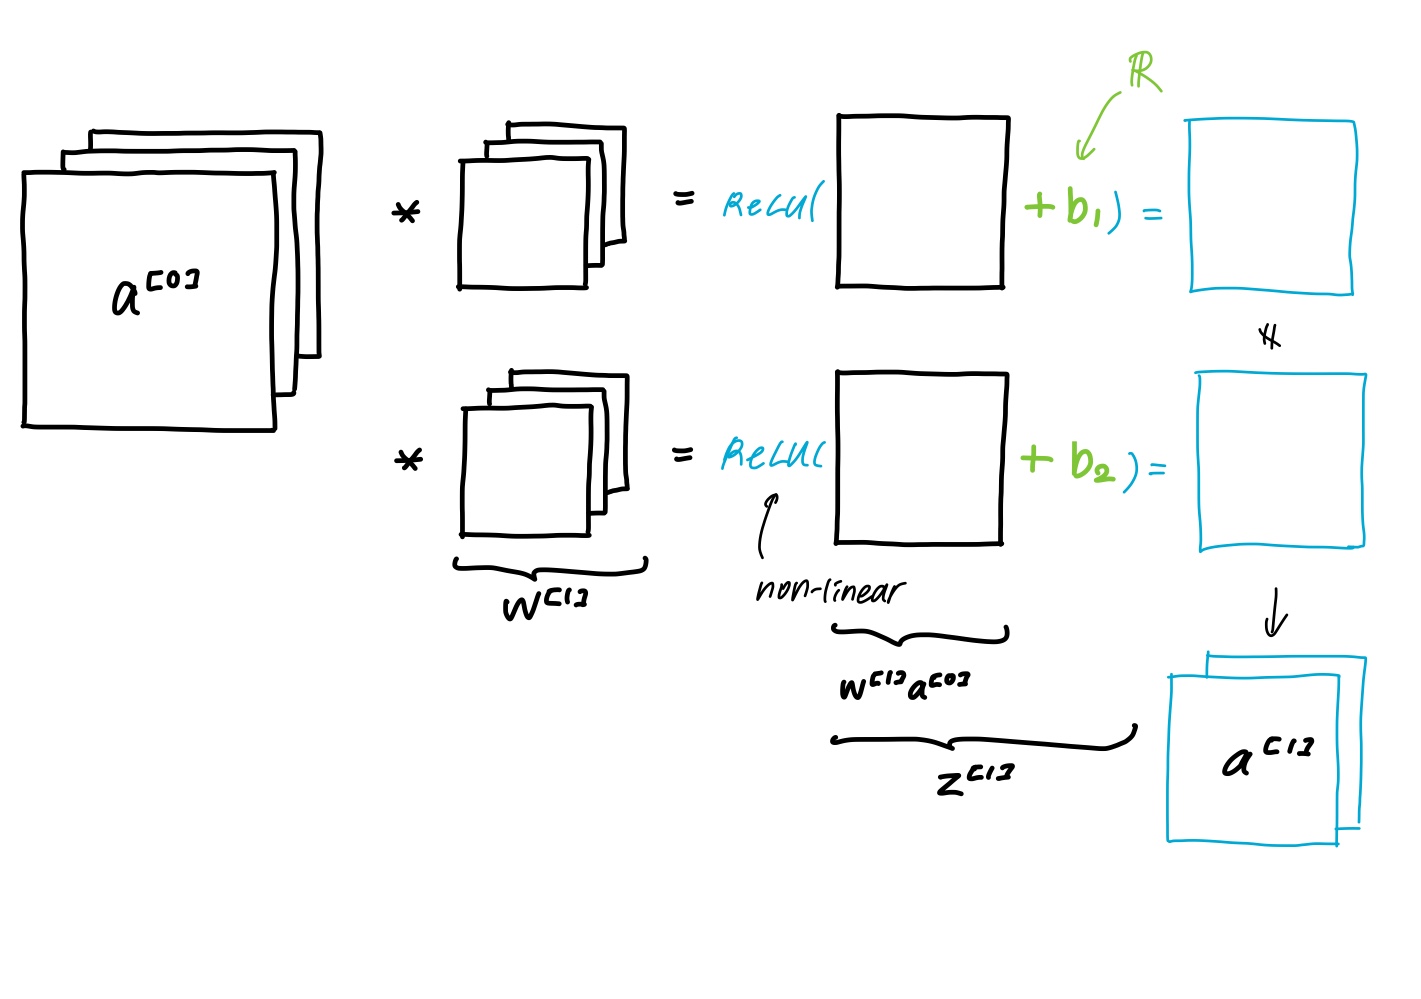 ℝ
* = ReLU( + b₁) =
a^[0]
*
* = ReLU( + b₂) =
W^[1]
non-linear
W^[1]a^[0]
a^[1]
z^[1]